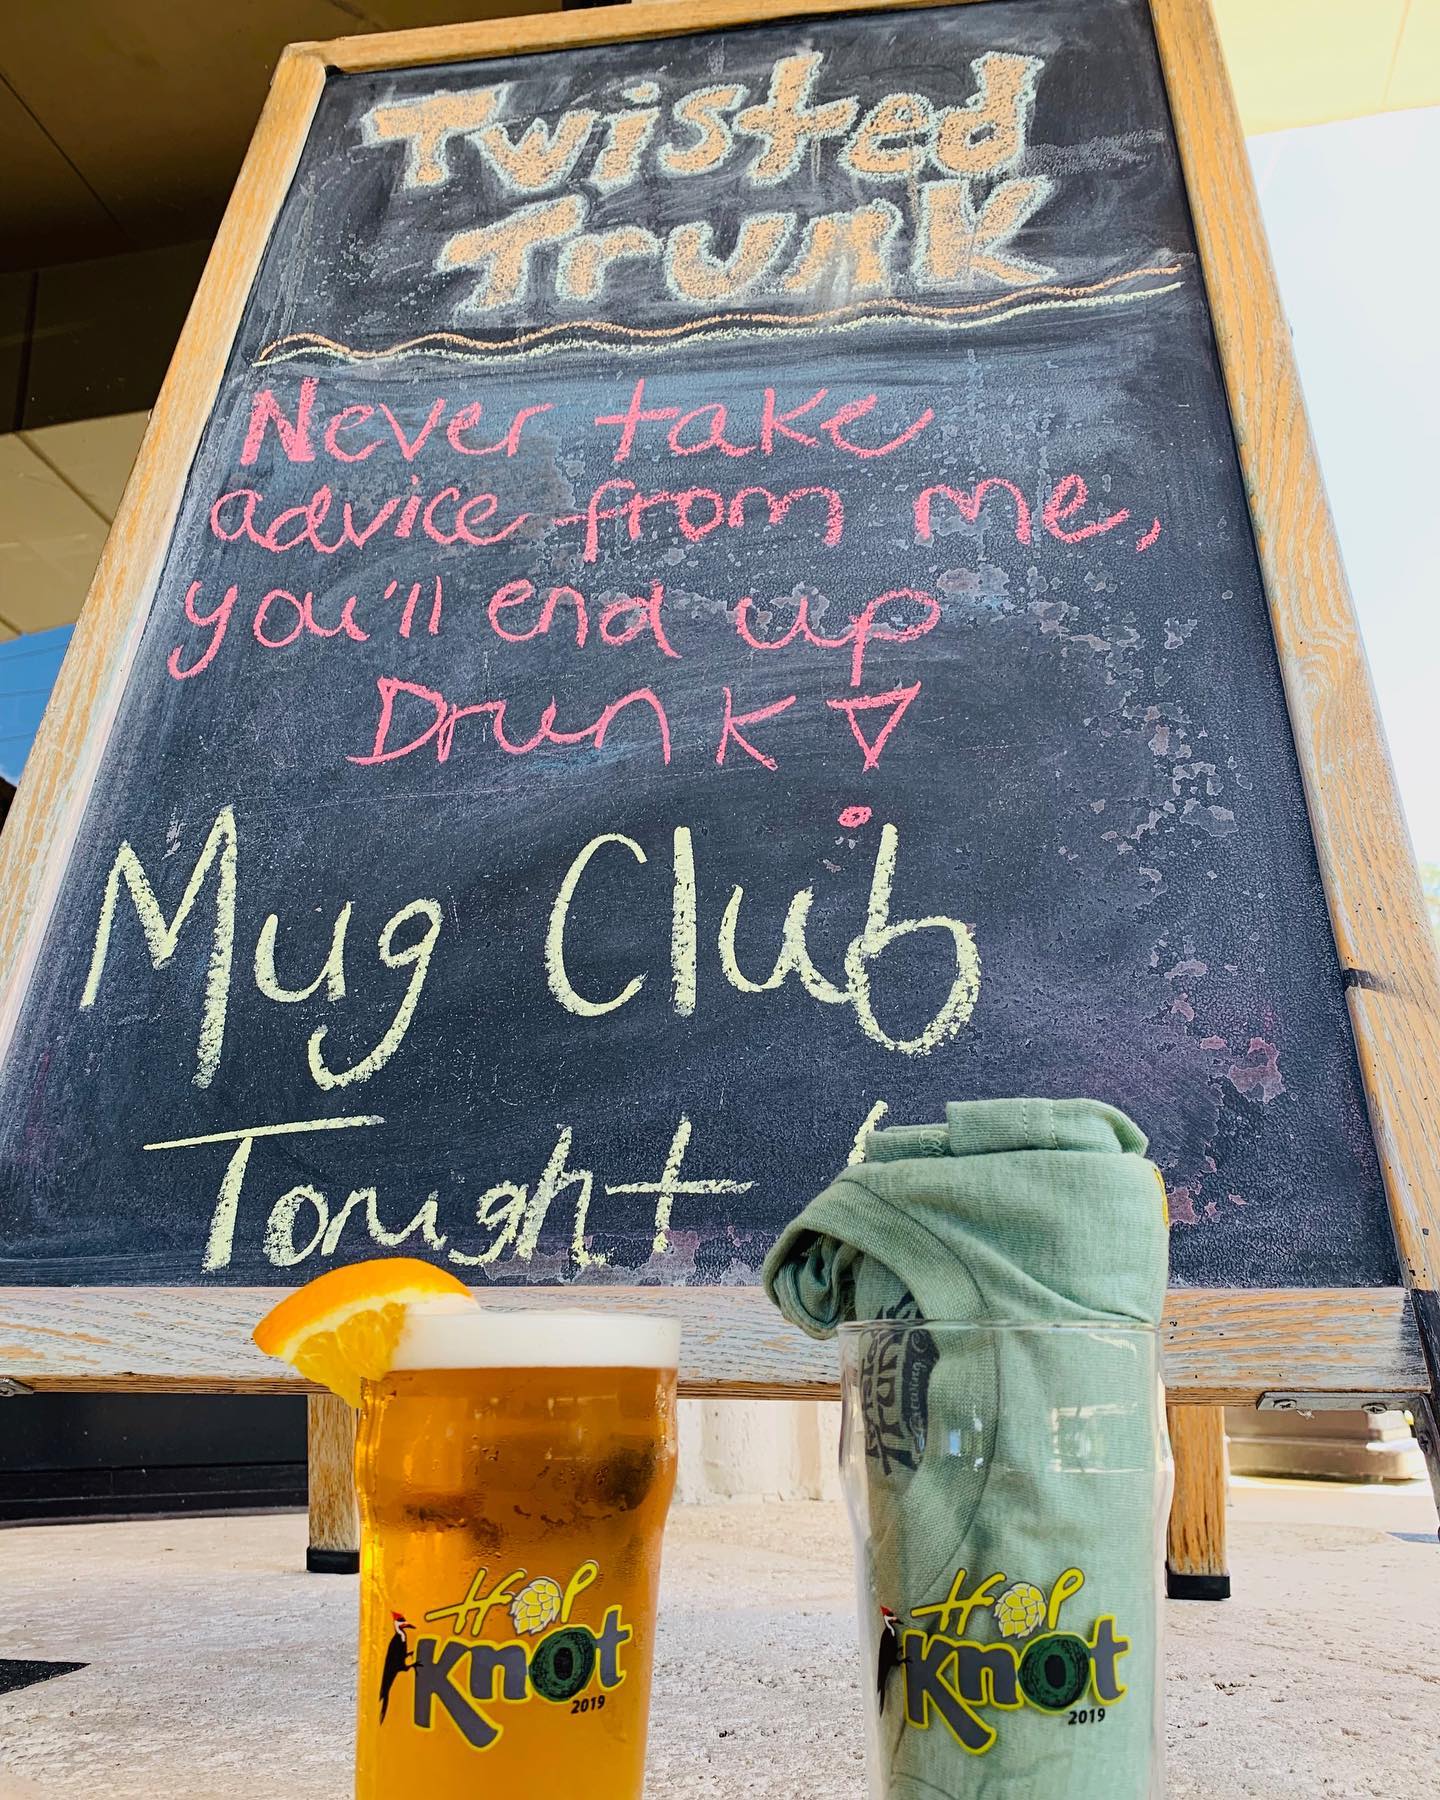 Twisted
Trunk
Never take
advice from me,
you'll end up
Drunk!
Mug Club
Tonight
Trunk
Brewing Co
Hop
Knot
2019
Hop
Knot
2019